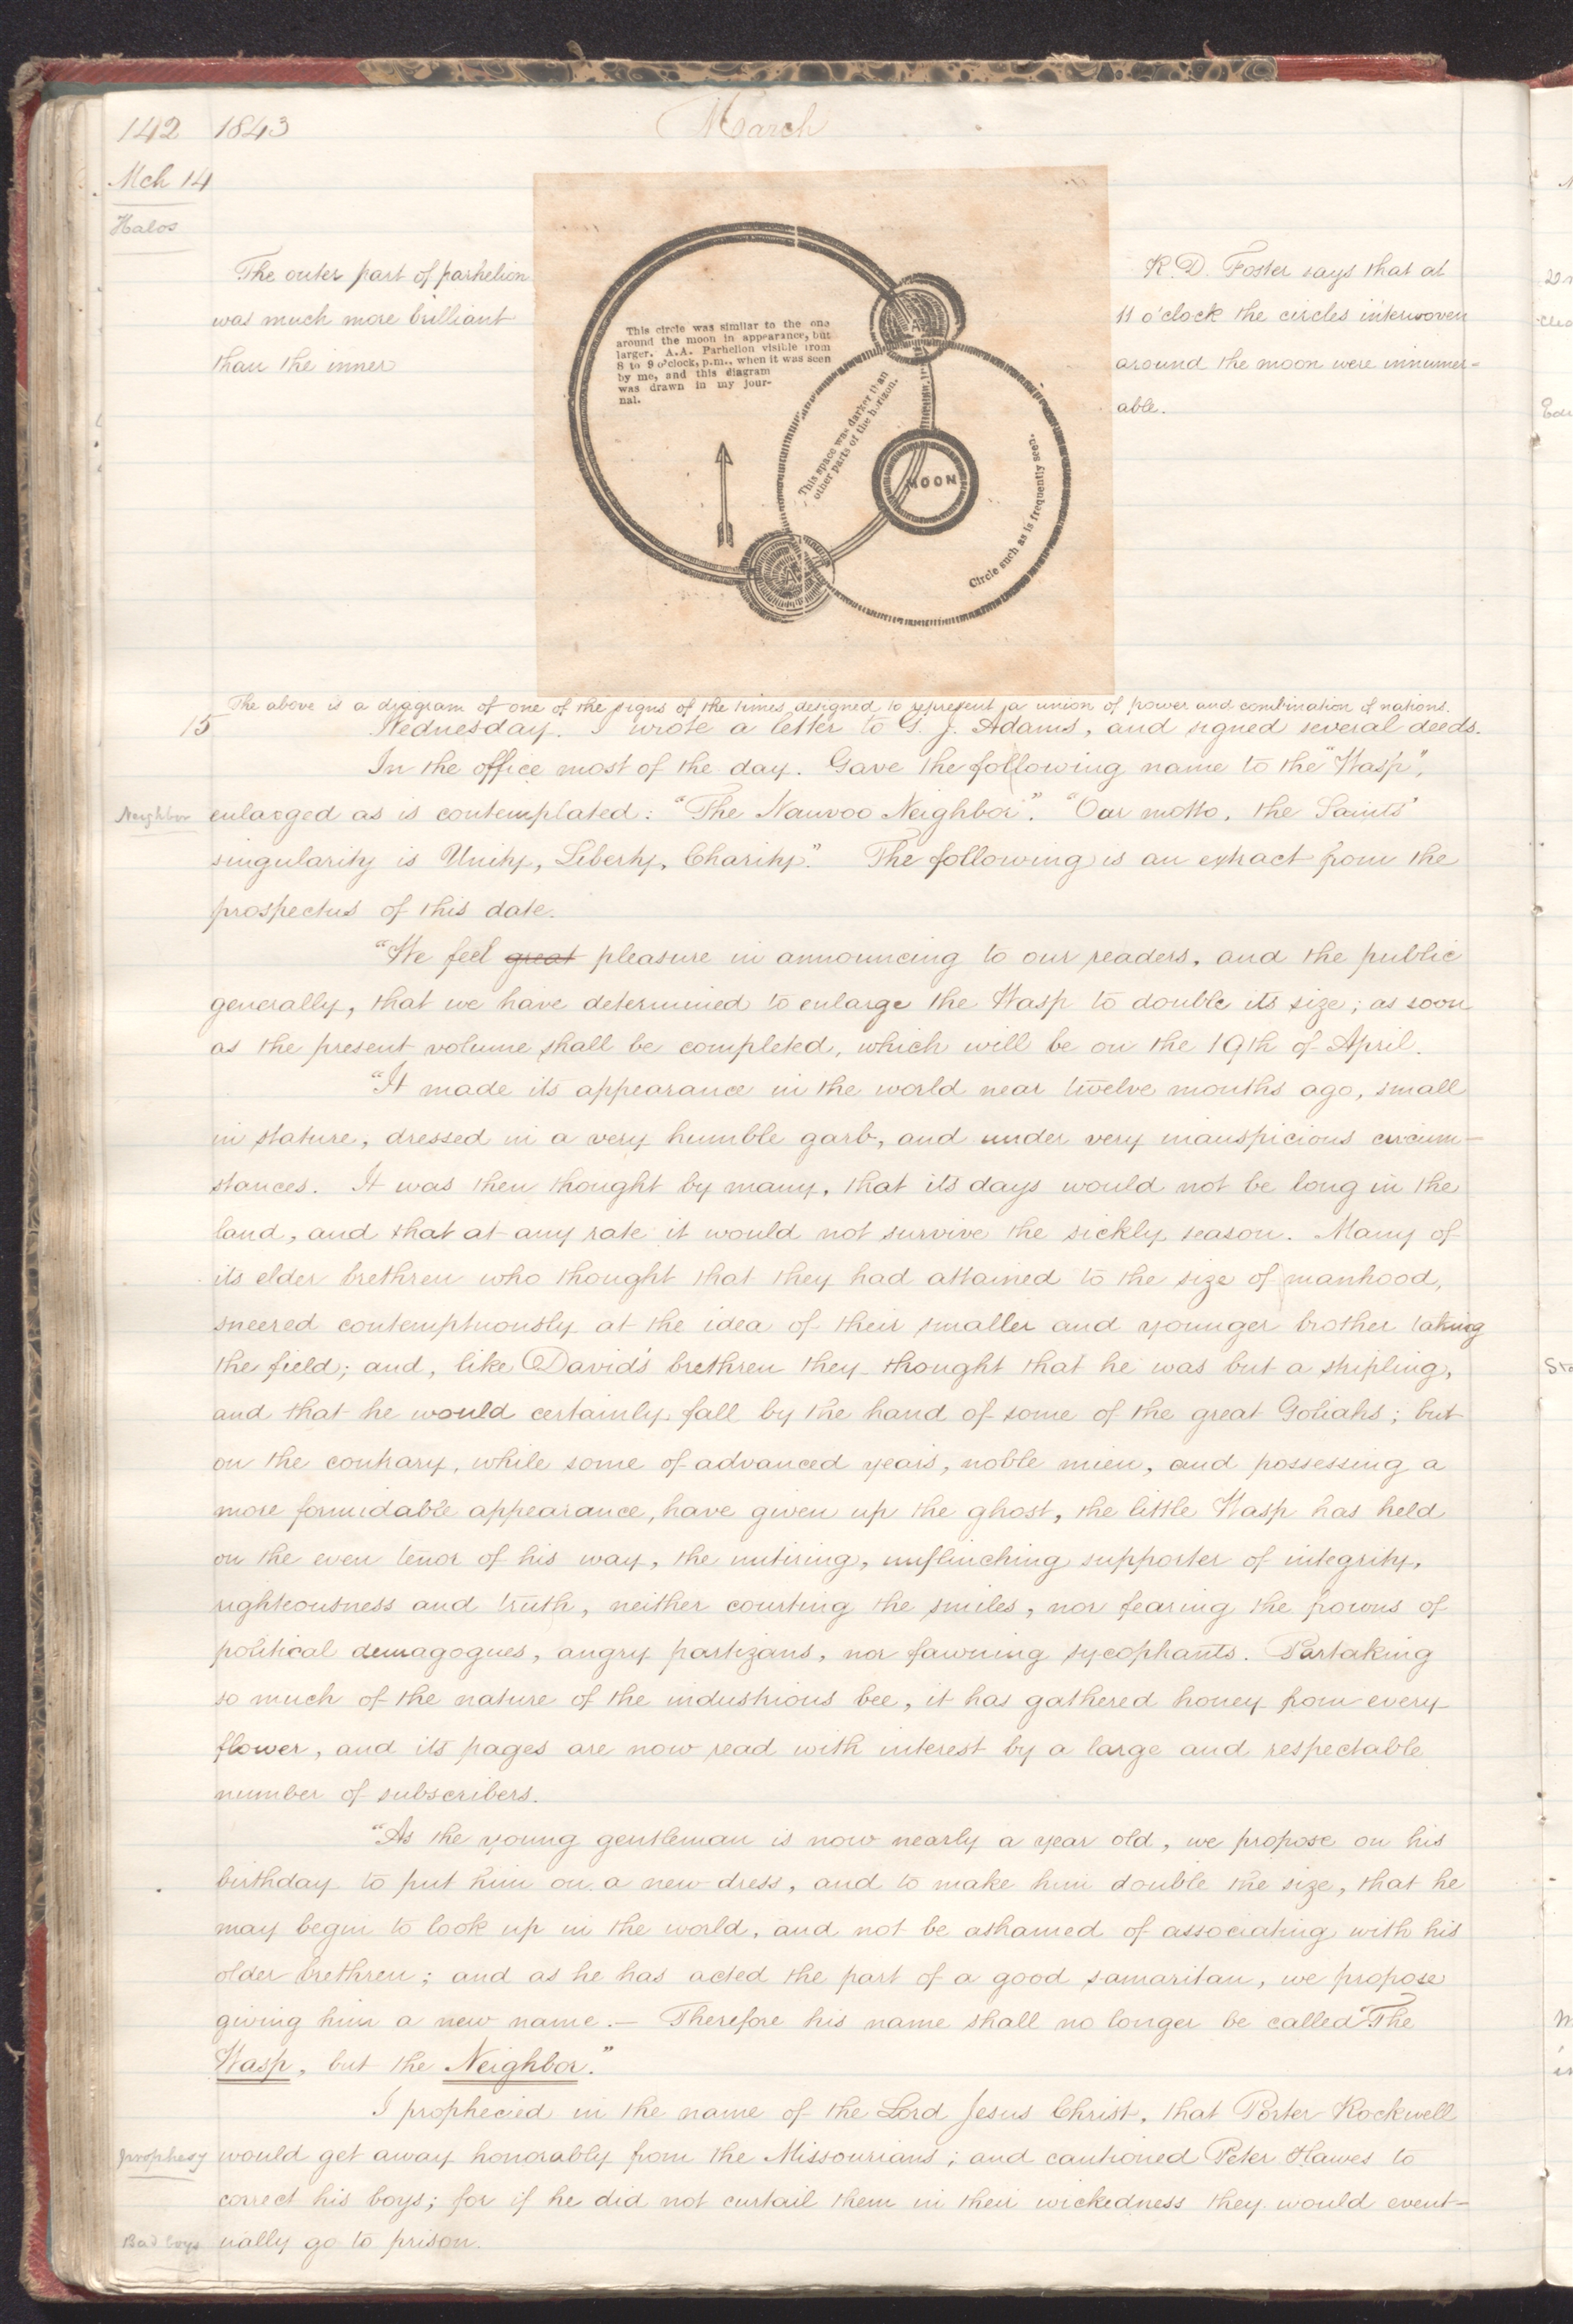 142 1843 March
Mch 14
Halos
The outer part of parhelion
was much more brilliant
than the inner
This circle was similar to the one
around the moon in appearance, but
larger. A.A. Parhelion visible from
8 to 9 o'clock, p.m., when it was seen
by me, and this diagram
was drawn in my jour-
nal.
A
This space was darker than
other parts of the horizon.
MOON
Circle such as is frequently seen.
A
R. D. Foster says that at
11 o'clock the circles interwoven
around the moon were innumer-
able.
The above is a diagram of one of the signs of the times designed to represent a union of power and combination of nations.
15 Wednesday. I wrote a letter to G. J. Adams, and signed several deeds.
In the office most of the day. Gave the following name to the "Wasp",
Neighbor enlarged as is contemplated: "The Nauvoo Neighbor". "Our motto, the Saints'
singularity is Unity, Liberty, Charity." The following is an extract from the
prospectus of this date.
"We feel great pleasure in announcing to our readers, and the public
generally, that we have determined to enlarge the Wasp to double its size; as soon
as the present volume shall be completed, which will be on the 19th of April.
"It made its appearance in the world near twelve months ago, small
in stature, dressed in a very humble garb, and under very inauspicious circum-
stances. It was then thought by many, that its days would not be long in the
land, and that at any rate it would not survive the sickly season. Many of
its elder brethren who thought that they had attained to the size of manhood,
sneered contemptuously at the idea of their smaller and younger brother taking
the field; and, like David's brethren they thought that he was but a stripling,
and that he would certainly fall by the hand of some of the great Goliahs; but
on the contrary, while some of advanced years, noble mien, and possessing a
more formidable appearance, have given up the ghost, the little Wasp has held
on the even tenor of his way, the untiring, unflinching supporter of integrity,
righteousness and truth, neither courting the smiles, nor fearing the frowns of
political demagogues, angry partizans, nor fawning sycophants. Partaking
so much of the nature of the industrious bee, it has gathered honey from every
flower, and its pages are now read with interest by a large and respectable
number of subscribers.
"As the young gentleman is now nearly a year old, we propose on his
birthday to put him on a new dress, and to make him double the size, that he
may begin to look up in the world, and not be ashamed of associating with his
older brethren; and as he has acted the part of a good samaritan, we propose
giving him a new name.— Therefore his name shall no longer be called "The
Wasp, but the Neighbor."
I prophecied in the name of the Lord Jesus Christ, that Porter Rockwell
prophesy would get away honorably from the Missourians; and cautioned Peter Hawes to
correct his boys; for if he did not curtail them in their wickedness they would event-
Bad boys ually go to prison.